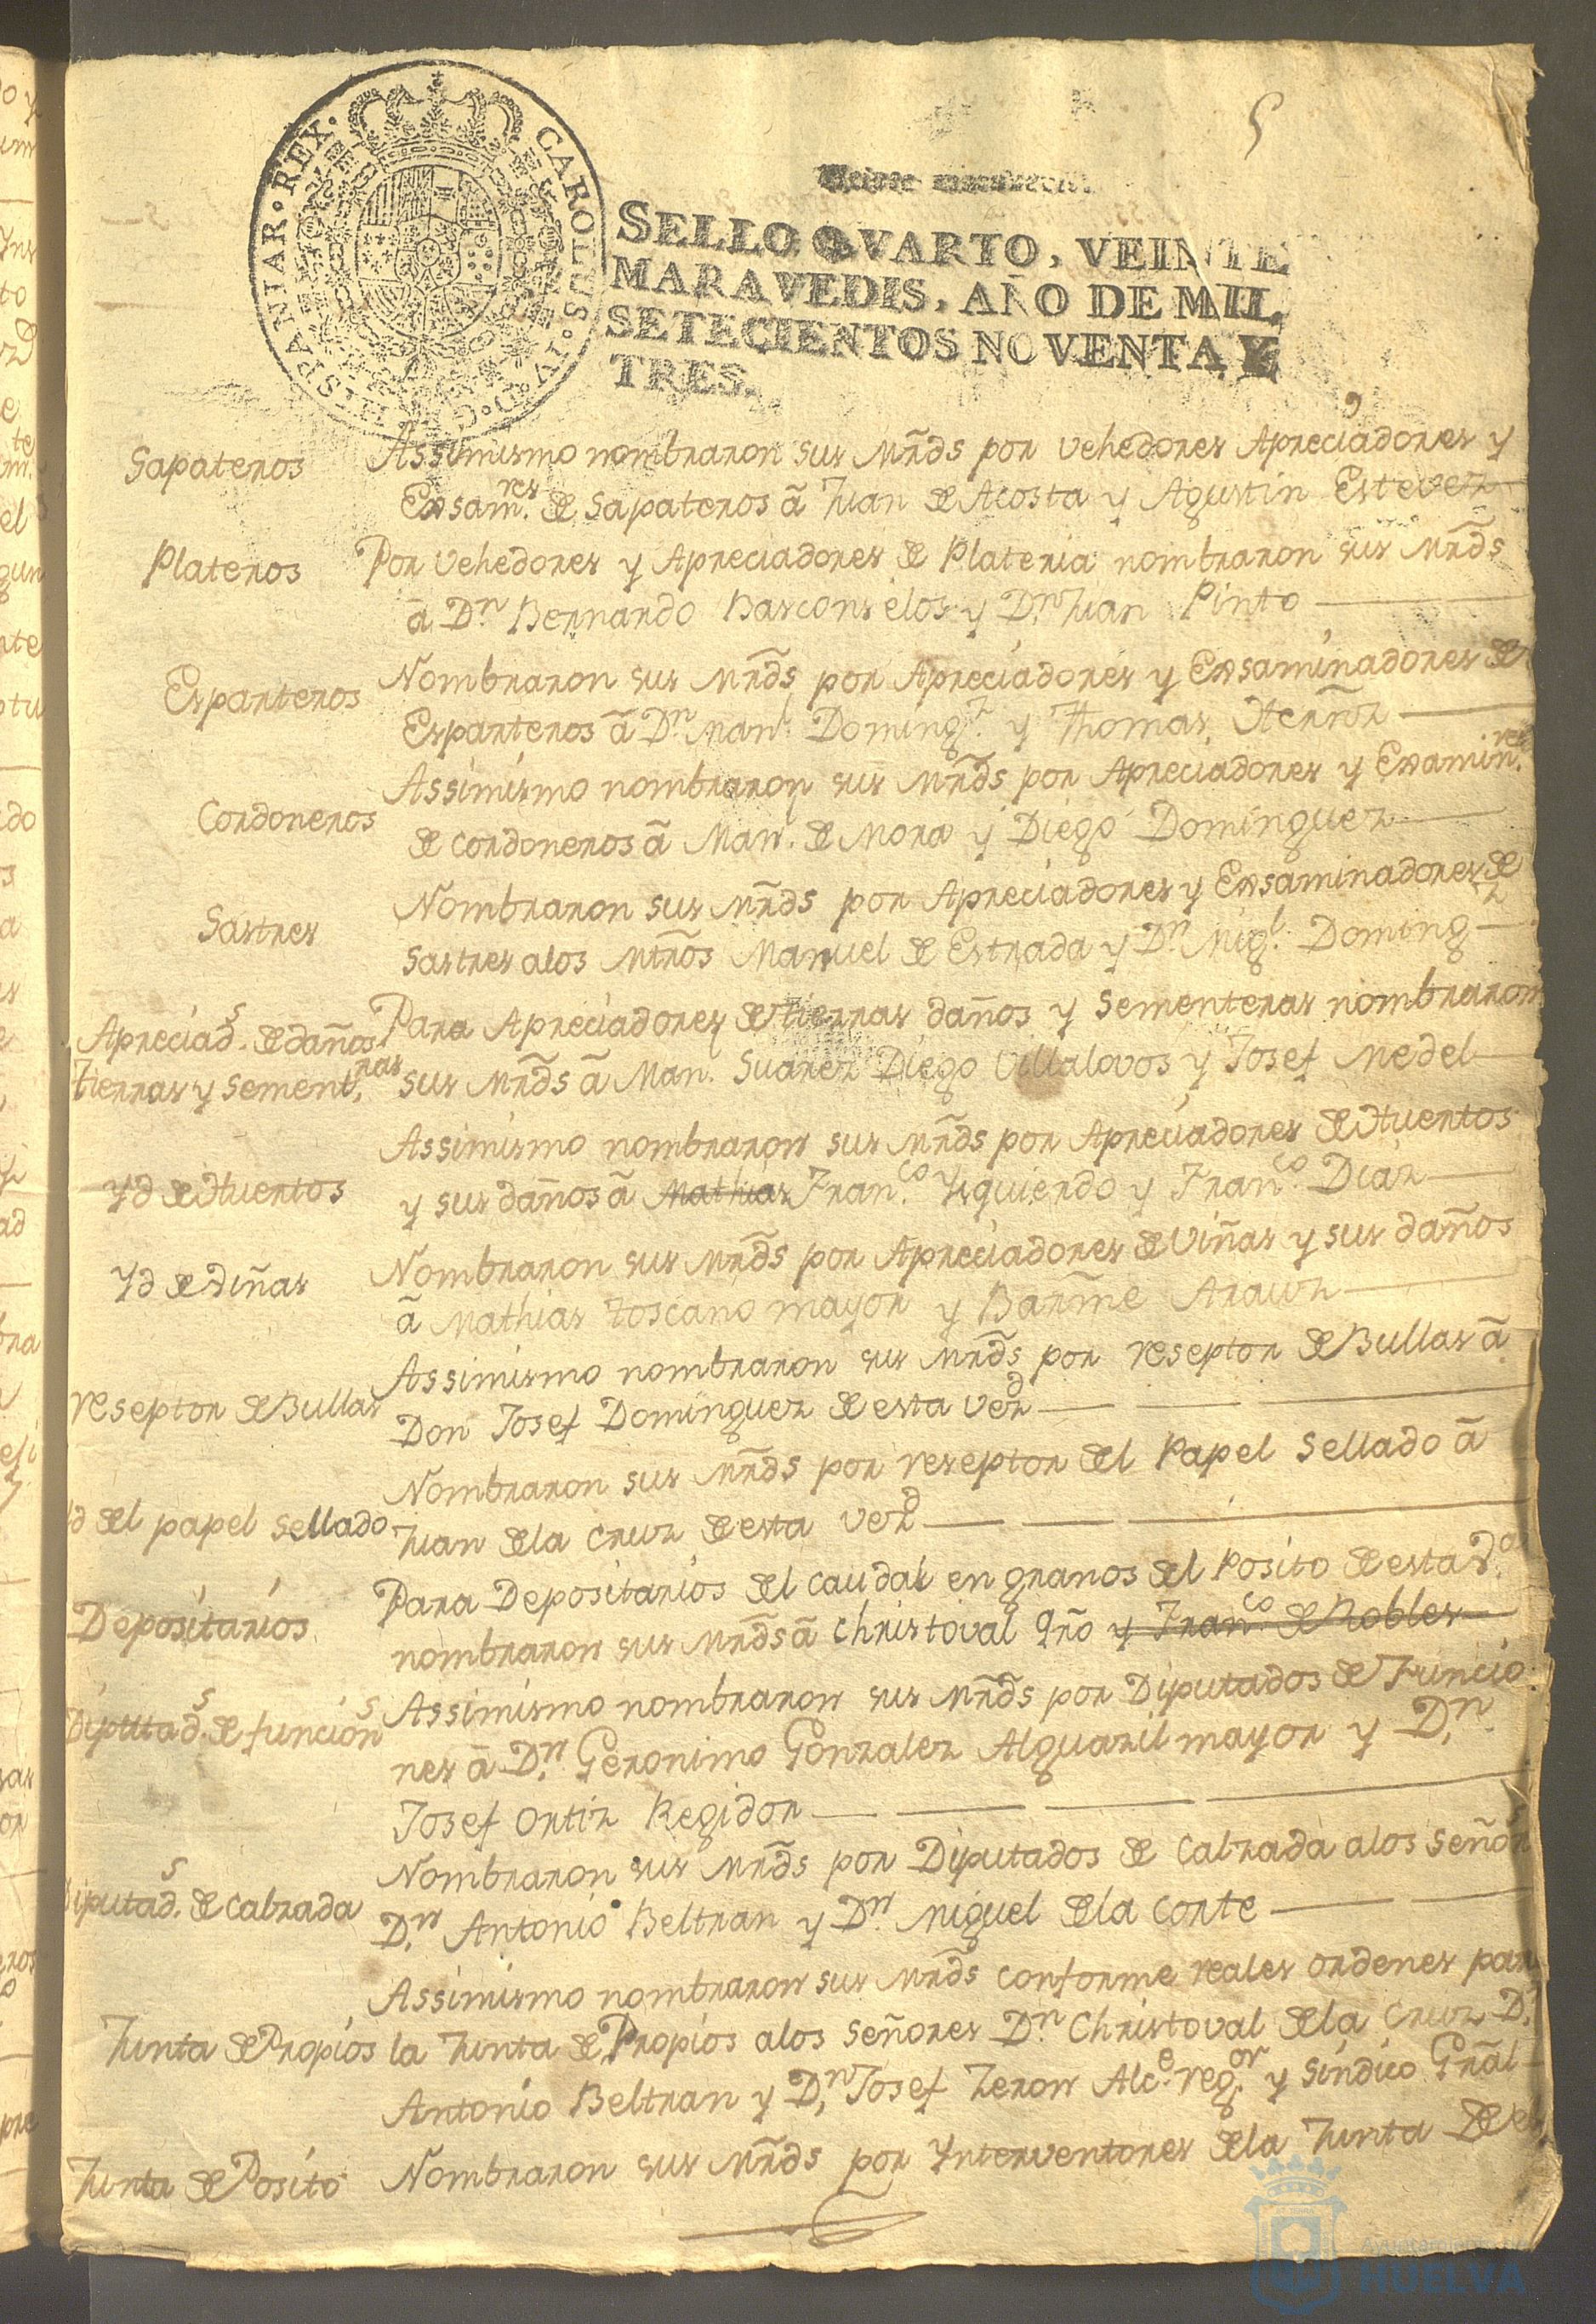 5
CAROLUS. IV. D. G. HISPANIAR. REX.
SELLO QVARTO, VEINTE
MARAVEDIS, AÑO DE MIL
SETECIENTOS NOVENTA Y
TRES.
Sapateros
Assimismo nombraron sus Mr̃ds por vehedores Apreciadores y
Exsam.res de Sapateros ã Juan de Acosta y Agustin Estevez
Plateros
Por vehedores y Apreciadores de Plateria nombraron sus Mr̃ds
ã D.n Bernardo Basconselos y D.n Juan Pinto
Esparteros
Nombraron sus Mr̃ds por Apreciadores y Exsaminadores de
Esparteros ã D.n Man.l Doming.z y Thomas Herñz
Cordoneros
Assimismo nombraron sus Mr̃ds por Apreciadores y Examin.res
de cordoneros ã Man.l de Mora y Diego Dominguez
Sastres
Nombraron sus Mr̃ds por Apreciadores y Exsaminadores de
Sastres alos Mtr̃os Manuel de Estrada y D.n Mig.l Doming.z
Apreciad.s de daños
tierras y sement.ras
Para Apreciadores de tierras daños y sementeras nombraron
sus Mr̃ds ã Man. Suarez Diego Villalovos y Josef Medel
Yd de Huertos
Assimismo nombraron sus Mr̃ds por Apreciadores de Huertos
y sus daños ã Mathias Fran.co Ysquierdo y Fran.co Diaz
Yd de viñas
Nombraron sus Mr̃ds por Apreciadores de viñas y sus daños
ã Mathias Toscano mayor y Barm̃e Arauz
reseptor de Bullas
Assimismo nombraron sus Mr̃ds por reseptor de Bullas ã
Don Josef Dominguez de esta vezd
Yd del papel sellado
Nombraron sus Mr̃ds por reseptor del Papel Sellado ã
Juan dela Cruz de esta vezd
Depositarios
Para Depositarios del caudal en granos del Posito de esta V.a
nombraron sus Mr̃ds ã Christoval Qrõ y Fran.co de Robles
Diputad.s de funcion.s
Assimismo nombraron sus Mr̃ds por Diputados de Funcio
nes ã D.n Geronimo Gonzalez Alguazil mayor y D.n
Josef Ortiz Regidor
Diputad.s de Calzada
Nombraron sus Mr̃ds por Diputados de Calzada alos Señor.s
D.n Antonio Beltran y D.n Miguel dela Corte
Junta de Propios
Assimismo nombraron sus Mr̃ds conforme reales ordenes par
la Junta de Propios alos Señores D.n Christoval dela Cruz D.n
Antonio Beltran y D.n Josef Zeron Alc.e reg.or y Sindico Grãl
Junta de Posito
Nombraron sus Mr̃ds por Ynterventores dela Junta
Ayuntamiento de
HUELVA